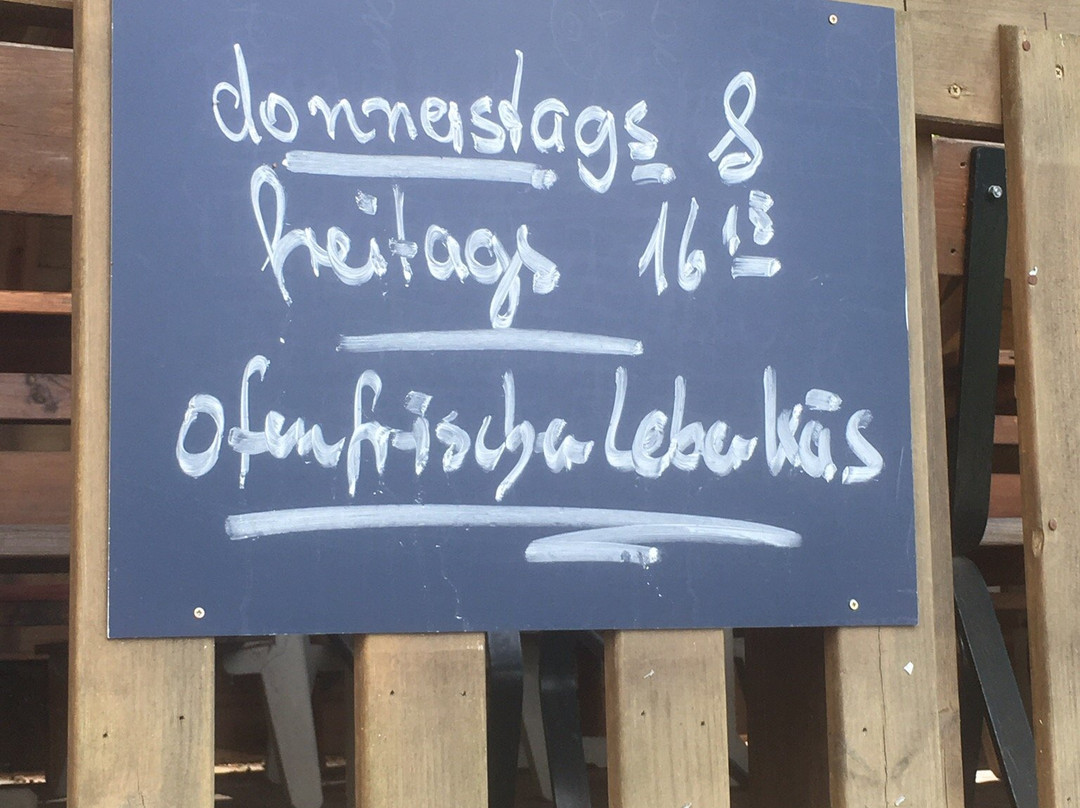 donnerstags &
freitags 16 18
ofenfrischer Leberkäs